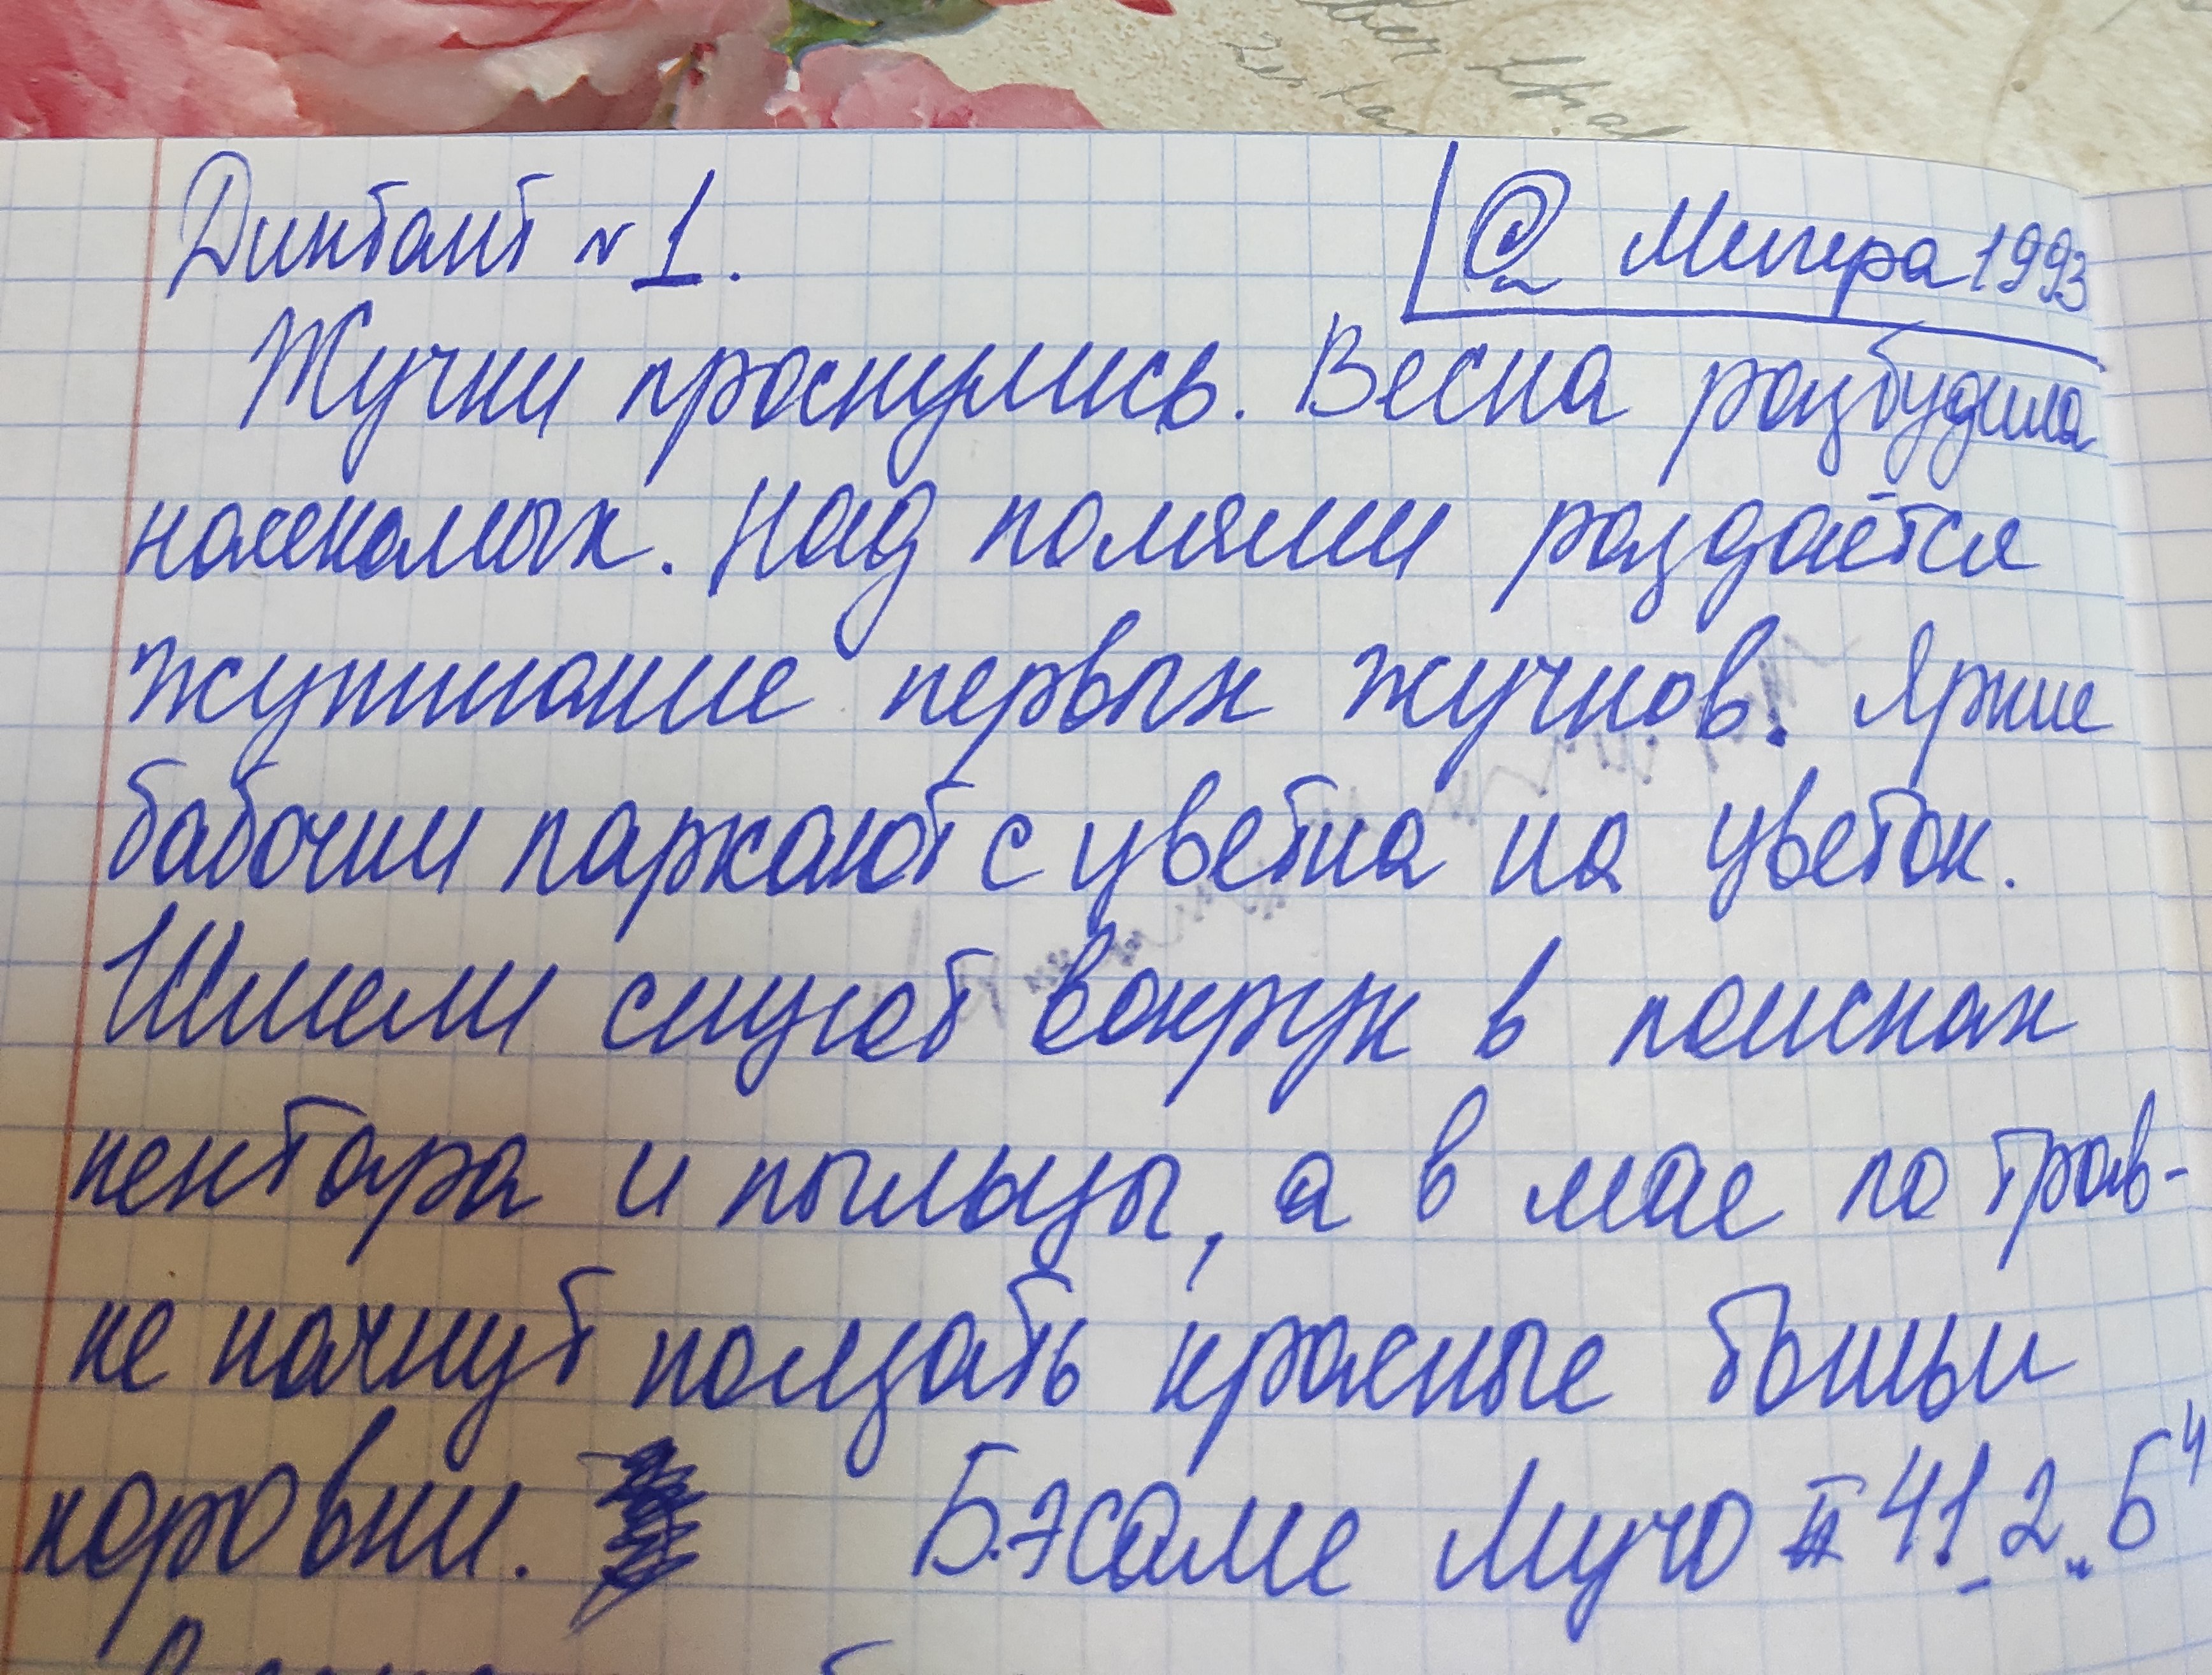 Диктант №1.
@ Мигера 1993
Жучки проснулись. Весна разбудила
насекомых. Над полями раздаётся
жужжание первых жучков. Яркие
бабочки паркают с цветка на цветок.
Шмели снуют вокруг в поисках
нектара и пыльцы, а в мае по трав-
ке начнут ползать красные божьи
коровки. Бэсаме Мучо II 41 2.. 6⁴